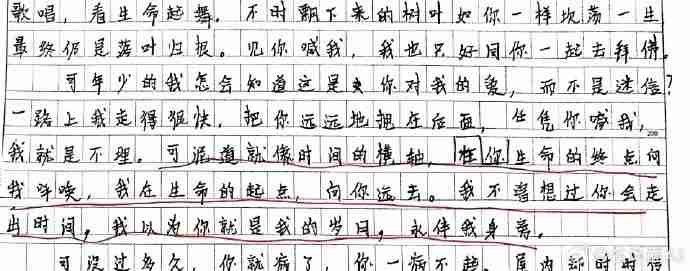 歌唱，看生命起舞。不时飘下来的树叶如你一样坎荡一生
最终仍是落叶归根。见你喊我，我也只好同你一起去拜佛。
可年少的我怎会知道这是你对我的爱，而不是迷信？
一路上我走得很快，把你远远地抛在后面，任凭你喊我，
我就是不理。可泥道就像时间的横轴，在你生命的终点向
我呼唤，我在生命的起点，向你远去。我不曾想过你会走
出时间，我以为你就是我的岁月，永伴我身旁。
可没过多久，你就病了，你一病不起。屋内